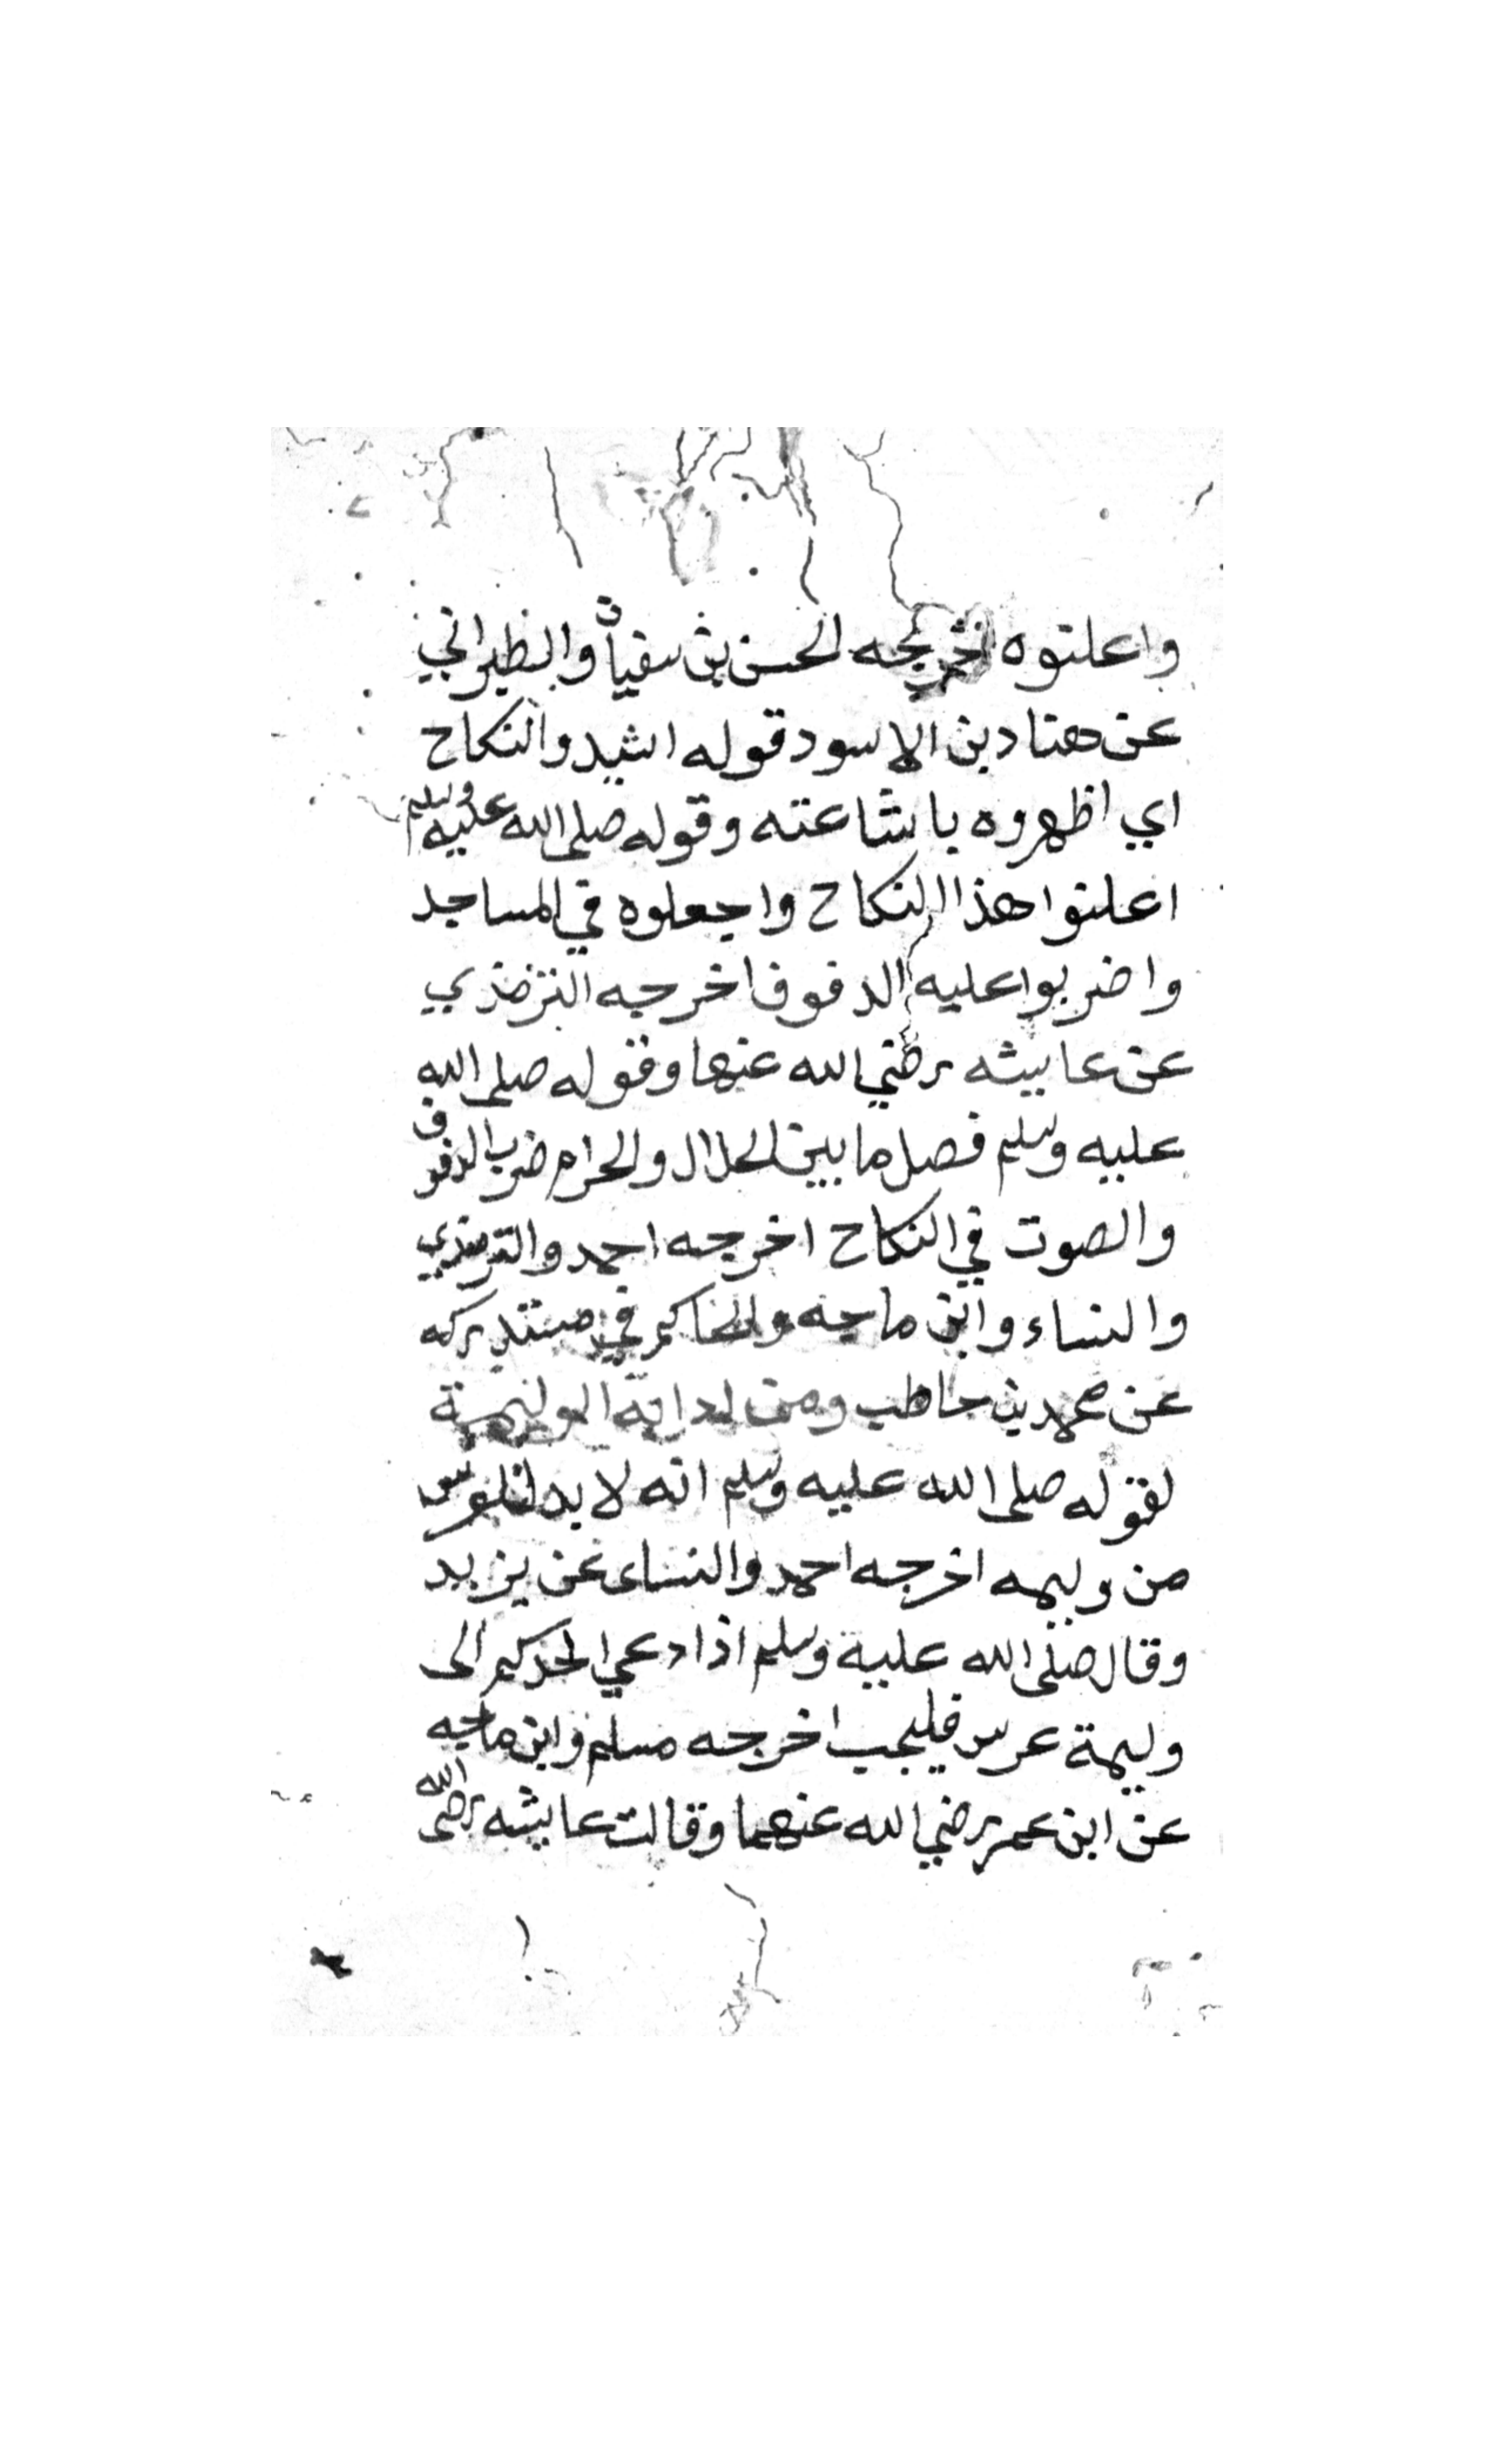 واعلنوه اخرجه الحسن بن سفيان والطبراني
عن هناد بن الاسود قوله اشيدوا النكاح
اي اظهروه باشاعته وقوله صلى الله عليه وسلم
اعلنوا هذا النكاح واجعلوه في المساجد
واضربوا عليه الدفوف اخرجه الترمذي
عن عايشه رضي الله عنها وقوله صلى الله
عليه وسلم فصل ما بين الحلال والحرام ضرب الدفوف
والصوت في النكاح اخرجه احمد والترمذي
والنساء وابن ماجه والحاكم في مستدركه
عن محمد بن حاطب ومن الوليمة
لقوله صلى الله عليه وسلم انه لا بد للعرس
من وليمه اخرجه احمد والنساى عن يزيد
وقال صلى الله علية وسلم اذا دعي احدكم الى
وليمة عرس فليجب اخرجه مسلم وابن ماجه
عن ابن عمر رضي الله عنهما وقالت عايشه رضى الله